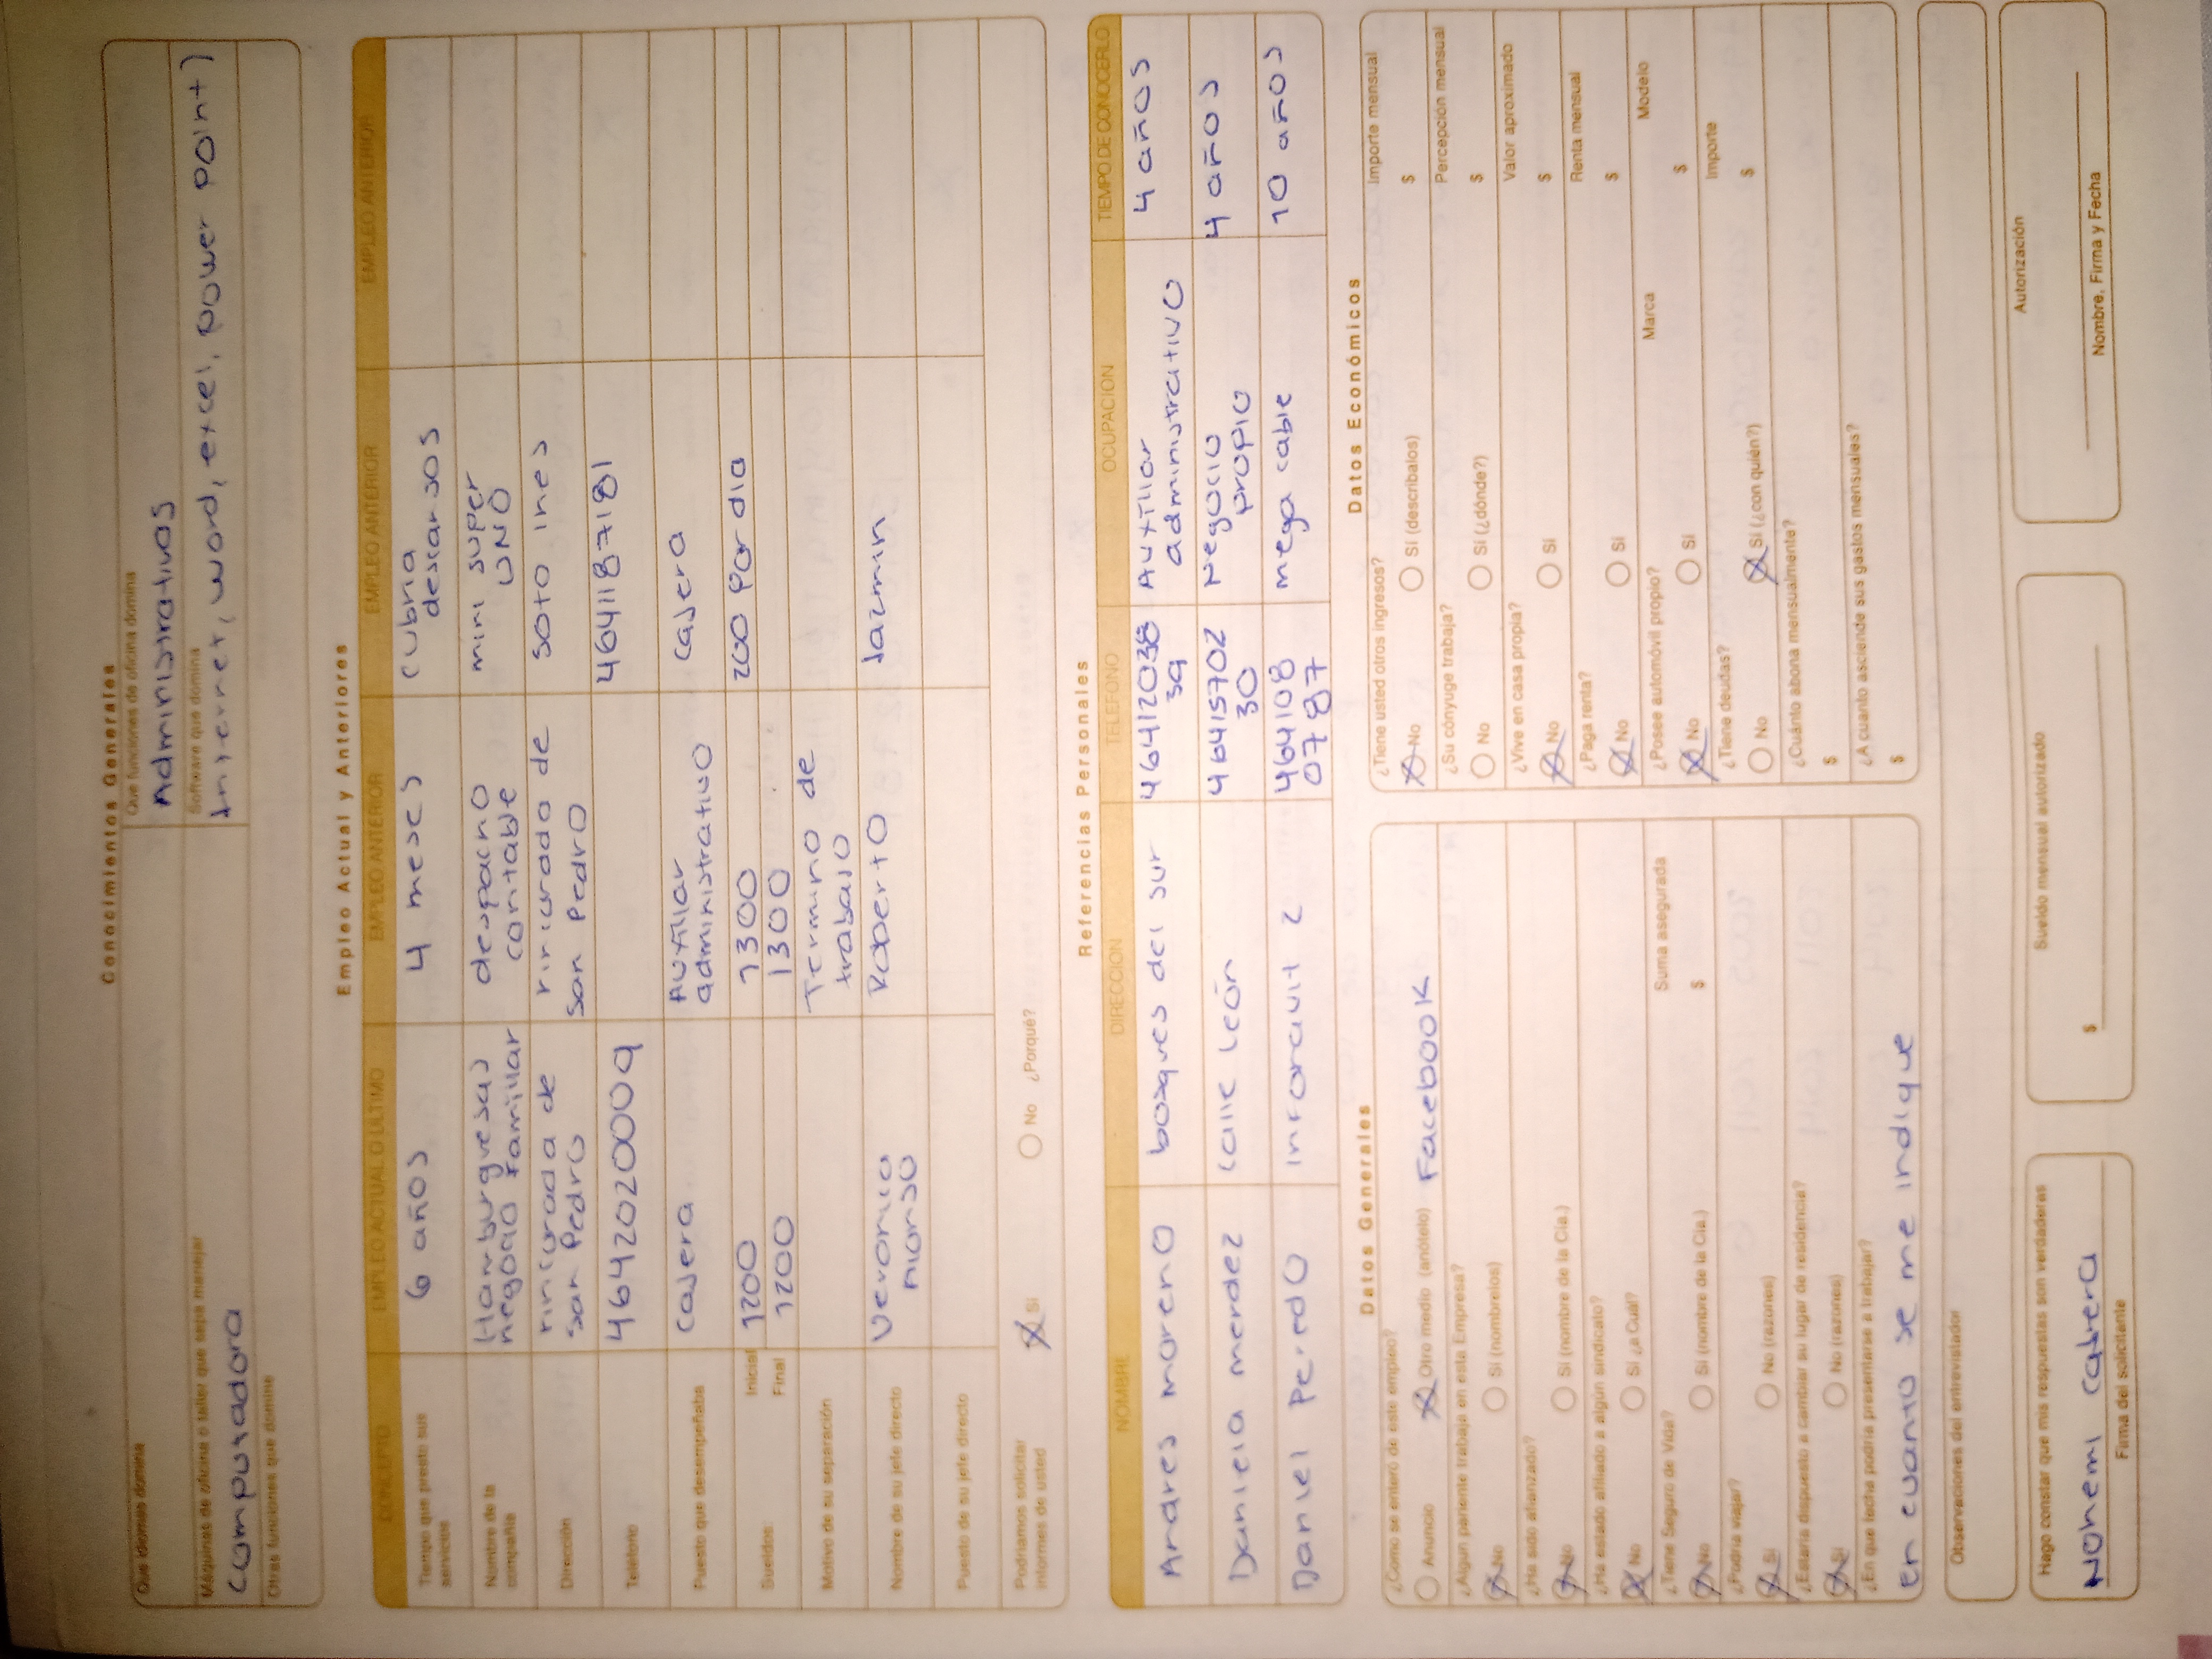 Conocimientos Generales
Que idiomas domina
Que funciones de oficina domina
Administrativos
Máquinas de oficina o taller que sepa manejar
computadora
Software que domina
Internet, word, excel, power point)
Otras funciones que domine
Empleo Actual y Anteriores
CONCEPTO EMPLEO ACTUAL O ULTIMO EMPLEO ANTERIOR EMPLEO ANTERIOR EMPLEO ANTERIOR
Tiempo que presto sus servicios 6 años 4 meses cubria descansos
Nombre de la compañía Hamburguesas negocio familiar despacho contable mini super UNO
Dirección rinconada de san Pedro rinconada de san Pedro soto ines
Teléfono 4642020009 4641187181
Puesto que desempeñaba cajera Auxiliar administrativo cajera
Sueldos: Inicial 1200 1300 200 por dia
Final 1200 1300
Motivo de su separación Termino de trabajo
Nombre de su jefe directo Veronica Roberto Jazmin
Puesto de su jefe directo
Podríamos solicitar informes de usted Si No ¿Porqué?
Referencias Personales
NOMBRE DIRECCION TELEFONO OCUPACION TIEMPO DE CONOCERLO
Andres moreno bosques del sur Auxiliar administrativo 4 años
Daniela mendez calle León 4641570230 Negocio propio 4 años
Daniel Peredo infonavit 2 4641080787 mega cable 10 años
Datos Generales
¿Cómo se enteró de este empleo?
Anuncio Otro medio (anótelo) Facebook
¿Algún pariente trabaja en esta Empresa?
No Sí (nómbrelos)
¿Ha sido afianzado?
No Sí (nombre de la Cía.)
¿Ha estado afiliado a algún sindicato?
No Sí ¿a Cuál?
¿Tiene Seguro de Vida? Suma asegurada
No Sí (nombre de la Cía.) $
¿Podría viajar?
Sí No (razones)
¿Estaría dispuesto a cambiar su lugar de residencia?
Sí No (razones)
¿En que fecha podría presentarse a trabajar?
en cuanto se me indique
Datos Económicos
¿Tiene usted otros ingresos? Importe mensual
No Sí (descríbalos) $
¿Su cónyuge trabaja? Percepción mensual
No Sí (¿dónde?) $
¿Vive en casa propia? Valor aproximado
No Sí $
¿Paga renta? Renta mensual
No Sí $
¿Posee automóvil propio? Marca Modelo
No Sí $
¿Tiene deudas? Importe
No Sí (¿con quién?) $
¿Cuánto abona mensualmente?
$
¿A cuanto asciende sus gastos mensuales?
$
Observaciones del entrevistador
Hago constar que mis respuestas son verdaderas
Nohemi Cabrera
Firma del solicitante
Sueldo mensual autorizado
$
Autorización
Nombre, Firma y Fecha